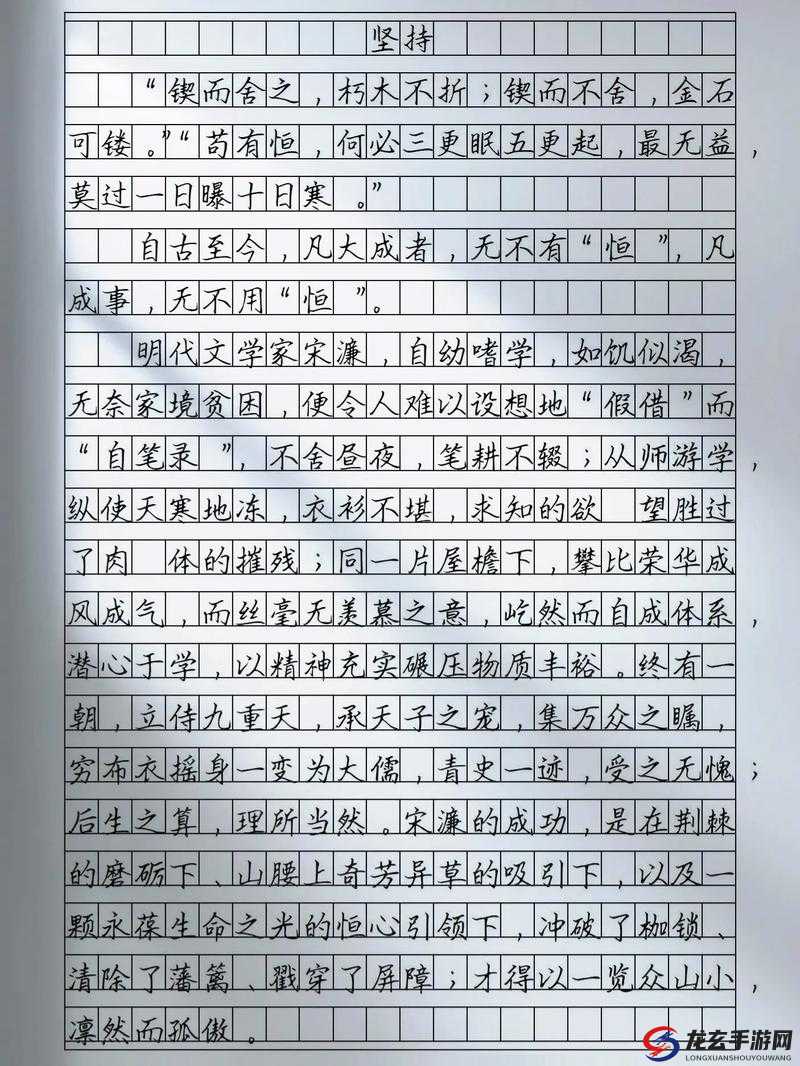 坚持
“锲而舍之，朽木不折；锲而不舍，金石
可镂。”“苟有恒，何必三更眠五更起，最无益，
莫过一日曝十日寒。”
自古至今，凡大成者，无不有“恒”，凡
成事，无不用“恒”。
明代文学家宋濂，自幼嗜学，如饥似渴，
无奈家境贫困，便令人难以设想地“假借”而
“自笔录”，不舍昼夜，笔耕不辍；从师游学，
纵使天寒地冻，衣衫不堪，求知的欲 望胜过
了肉 体的摧残；同一片屋檐下，攀比荣华成
风成气，而丝毫无羡慕之意，屹然而自成体系，
潜心于学，以精神充实碾压物质丰裕。终有一
朝，立侍九重天，承天子之宠，集万众之瞩，
穷布衣摇身一变为大儒，青史一迹，受之无愧；
后生之算，理所当然。宋濂的成功，是在荆棘
的磨砺下、山腰上奇芳异草的吸引下，以及一
颗永葆生命之光的恒心引领下，冲破了枷锁、
清除了藩篱、戳穿了屏障；才得以一览众山小，
凛然而孤傲。
龙玄手游网
LONGXUANSHOUYOUWANG